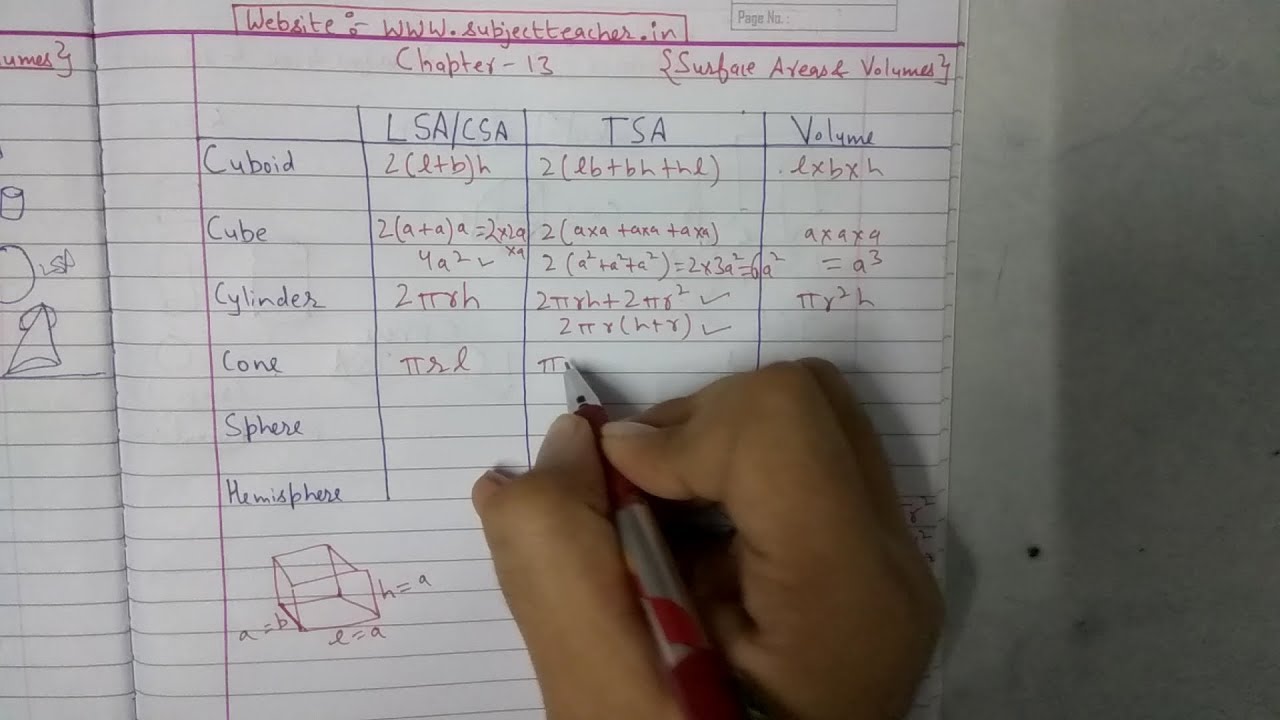 Website :- www.subjectteacher.in
Page No.:
umes}
Chapter - 13 {Surface Areas & Volumes}
LSA/CSA TSA Volume
Cuboid 2(l+b)h 2(lb+bh+hl) l×b×h
Cube 2(a+a)a=2×2a 2(a×a+a×a+a×a) a×a×a
×a
4a² ✓ 2(a²+a²+a²)=2×3a²=6a² = a³
Cylinder 2πrh 2πrh+2πr² ✓ πr²h
2πr(h+r) ✓
Cone πrl π
Sphere
Hemisphere
h=a
a=b
l=a